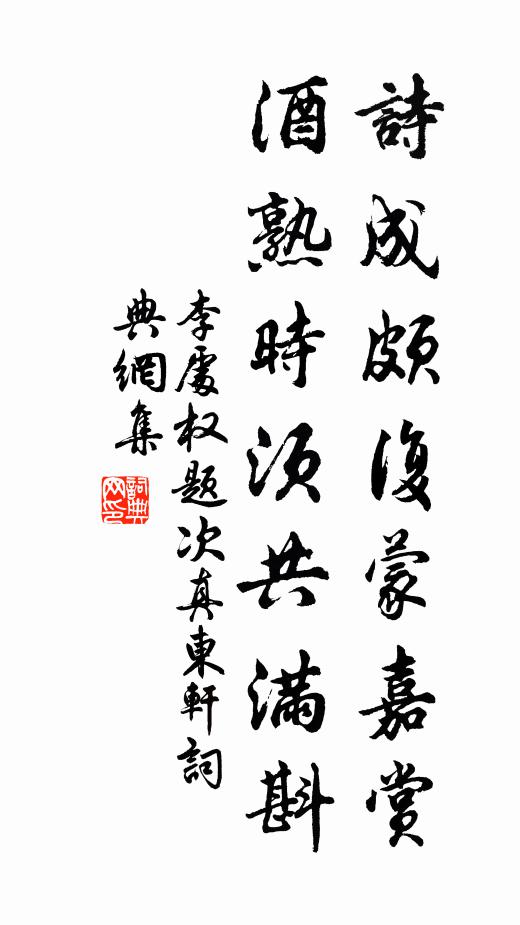 詩成頗復蒙嘉賞
酒熟時須共滿斟
李處权題次真東軒詞
典網集
詞典
网印